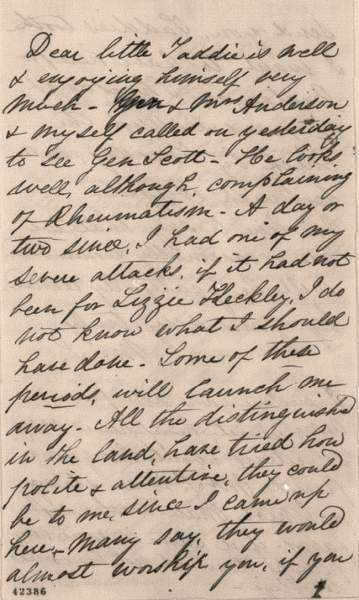 Dear little Taddie is well
& enjoying himself very
much - Gen & Mrs Anderson
& myself called on yesterday
to see Gen Scott - He looks
well, although, complaining
of Rheumatism - A day or
two since, I had one of my
severe attacks, if it had not
been for Lizzie Keckley, I do
not know what I should
have done - Some of these
periods, will launch me
away - All the distinguished
in the land, have tried how
polite & attentive, they could
be to me, since I came up
here - Many say, they would
almost worship you, if you
42386